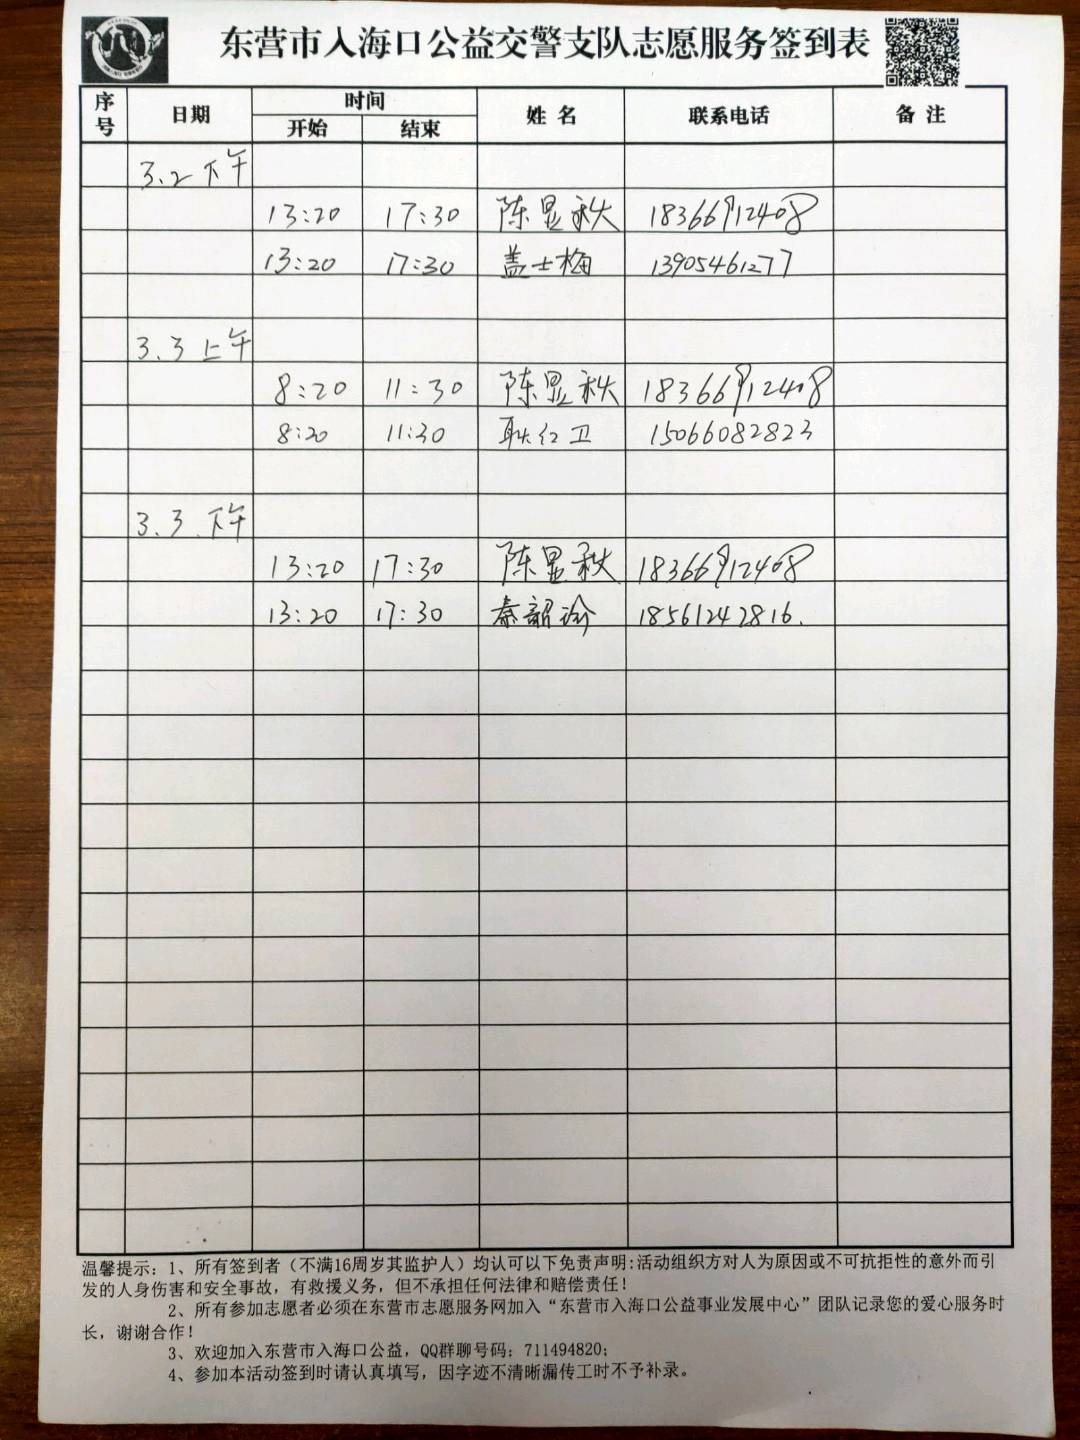 东营市入海口公益交警支队志愿服务签到表
序号 日期 时间 姓名 联系电话 备注
开始 结束
3.2 下午
13:20 17:30 陈显秋 18366912408
13:20 17:30 盖士梅 13905461277
3.3 上午
8:20 11:30 陈显秋 18366912408
8:20 11:30 耿红卫 15066082823
3.3.下午
13:20 17:30 陈显秋 18366912408
13:20 17:30 秦韶玲 18561242816.
温馨提示:1、所有签到者(不满16周岁其监护人)均认可以下免责声明:活动组织方对人为原因或不可抗拒性的意外而引
发的人身伤害和安全事故,有救援义务,但不承担任何法律和赔偿责任!
2、所有参加志愿者必须在东营市志愿服务网加入“东营市入海口公益事业发展中心”团队记录您的爱心服务时
长,谢谢合作!
3、欢迎加入东营市入海口公益,QQ群聊号码:711494820;
4、参加本活动签到时请认真填写,因字迹不清晰漏传工时不予补录。